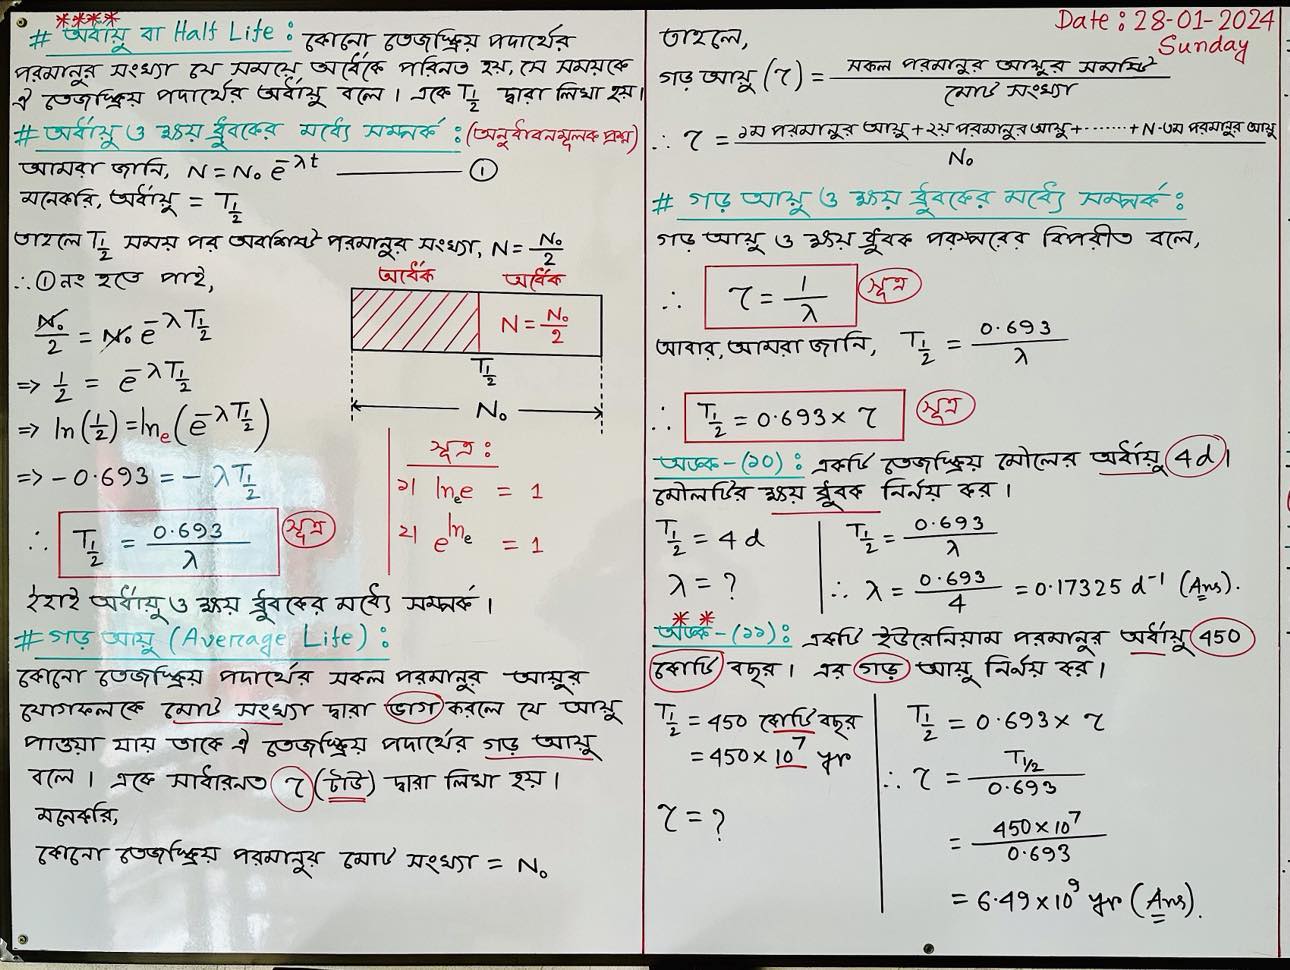 # অর্ধায়ু বা Half Life : কোনো তেজষ্ক্রিয় পদার্থের
পরমানুর সংখ্যা যে সময়ে অর্ধেকে পরিনত হয়, সে সময়কে
ঐ তেজষ্ক্রিয় পদার্থের অর্ধায়ু বলে। একে T½ দ্বারা লিখা হয়।
# অর্ধায়ু ও ক্ষয় ধ্রুবকের মধ্যে সম্পর্ক : (অনুধাবনমূলক প্রশ্ন)
আমরা জানি, N = N₀ e^-λt ——— ①
মনেকরি, অর্ধায়ু = T½
তাহলে T½ সময় পর অবশিষ্ট পরমানুর সংখ্যা, N = N₀/2
∴ ① নং হতে পাই,
অর্ধেক অর্ধেক
N = N₀/2
T½
N₀
N₀/2 = N₀ e^-λT½
⇒ 1/2 = e^-λT½
⇒ ln(1/2) = lnₑ(e^-λT½)
⇒ -0.693 = - λT½
∴ T½ = 0.693/λ সূত্র
সূত্র :
১। lnₑe = 1
২। e^lnₑ = 1
ইহাই অর্ধায়ু ও ক্ষয় ধ্রুবকের মধ্যে সম্পর্ক।
# গড় আয়ু (Average Life) :
কোনো তেজষ্ক্রিয় পদার্থের সকল পরমানুর আয়ুর
যোগফলকে মোট সংখ্যা দ্বারা ভাগ করলে যে আয়ু
পাওয়া যায় তাকে ঐ তেজষ্ক্রিয় পদার্থের গড় আয়ু
বলে। একে সাধারনত τ (টাউ) দ্বারা লিখা হয়।
মনেকরি,
কোনো তেজষ্ক্রিয় পরমানুর মোট সংখ্যা = N₀
Date : 28-01-2024
Sunday
তাহলে,
গড় আয়ু (τ) = সকল পরমানুর আয়ুর সমষ্টি / মোট সংখ্যা
∴ τ = ১ম পরমানুর আয়ু + ২য় পরমানুর আয়ু + ....... + N-তম পরমানুর আয়ু / N₀
# গড় আয়ু ও ক্ষয় ধ্রুবকের মধ্যে সম্পর্ক :
গড় আয়ু ও ক্ষয় ধ্রুবক পরস্পরের বিপরীত বলে,
∴ τ = 1/λ সূত্র
আবার, আমরা জানি, T½ = 0.693/λ
∴ T½ = 0.693 × τ সূত্র
অঙ্ক-(১০) : একটি তেজষ্ক্রিয় মৌলের অর্ধায়ু 4d।
মৌলটির ক্ষয় ধ্রুবক নির্নয় কর।
T½ = 4 d
λ = ?
T½ = 0.693/λ
∴ λ = 0.693/4 = 0.17325 d⁻¹ (Ans).
অঙ্ক-(১১) : একটি ইউরেনিয়াম পরমানুর অর্ধায়ু 450
কোটি বছর। এর গড় আয়ু নির্নয় কর।
T½ = 450 কোটি বছর
= 450 × 10⁷ yr
τ = ?
T½ = 0.693 × τ
∴ τ = T1/2 / 0.693
= 450 × 10⁷ / 0.693
= 6.49 × 10⁹ yr (Ans).